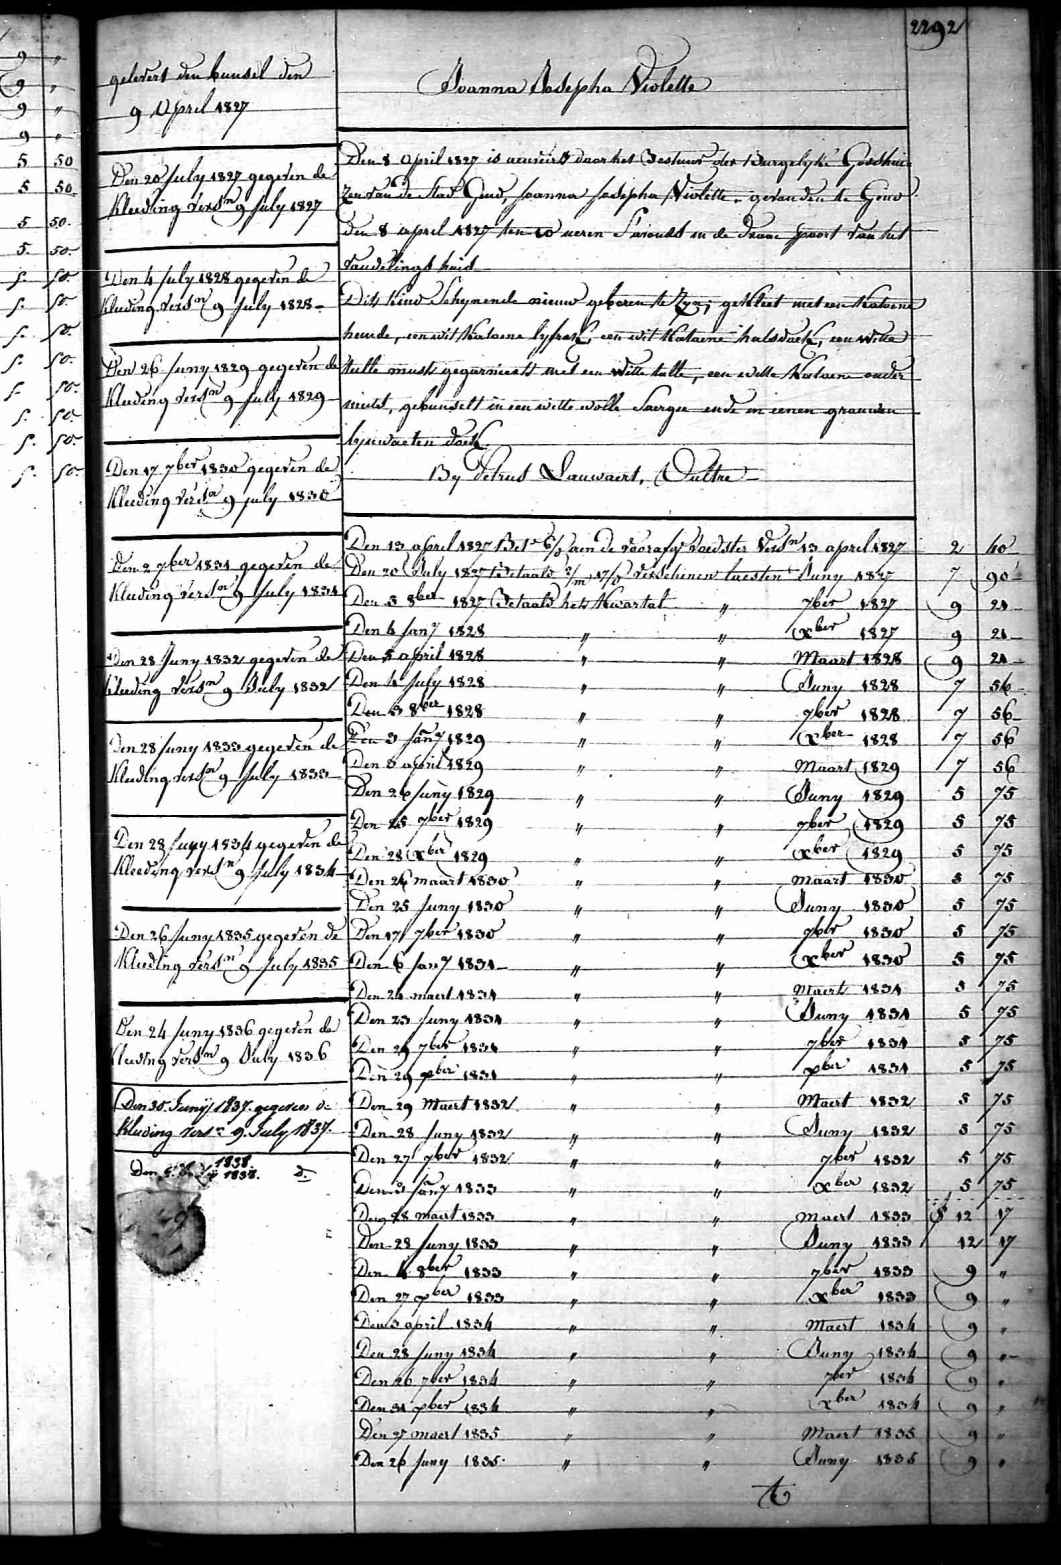 2292
Joanna Josepha Violette
gelevert den bunsel den
9 April 1827
Den 20 July 1827 gegeven de
Kleeding versn 9 July 1827
Den 4 July 1828 gegeven de
Kleeding versn 9 July 1828
Den 26 Juny 1829 gegeven de
Kleeding versn 9 July 1829
Den 17 7ber 1830 gegeven de
Kleeding versn 9 July 1830
Den 2 7ber 1831 gegeven de
Kleeding versn 9 July 1831
Den 28 Juny 1832 gegeven de
Kleeding versn 9 July 1832
Den 28 Juny 1833 gegeven de
Kleeding versn 9 July 1833
Den 28 Juny 1834 gegeven de
Kleeding versn 9 July 1834
Den 26 Juny 1835 gegeven de
Kleeding versn 9 July 1835
Den 24 Juny 1836 gegeven de
Kleeding versn 9 July 1836
Den 30 Junij 1837 gegeven de
Kleeding versn 9 July 1837
1838
Den 1838. d.
Den 8 April 1827 is door het Bestuur der Burgelyke Godshui-
zen van de Stad Gend, Joanna Josepha Violette, gevonden te Gend
den 8 april 1827 ten 10 ueren S'avonds in de draae poort van het
vondelings huis
Dits kind Schynende nieuw geboren te Zyn; gekleet met een Katoene
hemde, een wit Katoene lyfrok, een wit Katoene halsdoek, een witte
tulle muts gegarnieert met een witte tulle, een witte Katoene onder
muts, gebunselt in een witte wolle Sargie ende in eenen grauwen
lynwaeten doek.
By Petrus Lauwaert, Oultre
Den 13 april 1827 Bete 6/ aen de voedster versn 13 april 1827 2 40
Den 20 July 1827 betaald 2/m 17/ verschenen laesten Juny 1827 7 90
Den 5 8ber 1827 Betaald het Kwartal " 7ber 1827 9 21
Den 4 Jany 1828 " " Xber 1827 9 21
Den 5 april 1828 " " Maart 1828 9 21
Den 4 July 1828 " " Juny 1828 7 56
Den 3 8ber 1828 " " 7ber 1828 7 56
Den 3 Jany 1829 " " Xber 1828 7 56
Den 6 april 1829 " " Maart 1829 7 56
Den 26 Juny 1829 " " Juny 1829 5 75
Den 25 7ber 1829 " " 7ber 1829 5 75
Den 28 Xber 1829 " " Xber 1829 5 75
Den 26 maart 1830 " " Maart 1830 5 75
Den 25 Juny 1830 " " Juny 1830 5 75
Den 17 7ber 1830 " " 7ber 1830 5 75
Den 6 Jany 1831 " " Xber 1830 5 75
Den 24 maert 1831 " " Maert 1831 5 75
Den 23 Juny 1831 " " Juny 1831 5 75
Den 29 7ber 1831 " " 7ber 1831 5 75
Den 29 Xber 1831 " " Xber 1831 5 75
Den 29 Maert 1832 " " Maert 1832 5 75
Den 28 Juny 1832 " " Juny 1832 5 75
Den 27 7ber 1832 " " 7ber 1832 5 75
Den 3 Jany 1833 " " Xber 1832 5 75
Den 28 maert 1833 " " Maert 1833 12 17
Den 28 Juny 1833 " " Juny 1833 12 17
Den 4 8ber 1833 " " 7ber 1833 9 "
Den 27 Xber 1833 " " Xber 1833 9 "
Den 3 april 1834 " " Maert 1834 9 "
Den 28 Juny 1834 " " Juny 1834 9 "
Den 26 7ber 1834 " " 7ber 1834 9 "
Den 31 Xber 1834 " " Xber 1834 9 "
Den 27 maert 1835 " " Maert 1835 9 "
Den 26 Juny 1835 " " Juny 1835 9 "
9 "
9 "
9 "
9 "
5 50
5 50
5 50
5 50
5 50
5 50
5 50
5 50
5 50
5 50
5 50
5 50